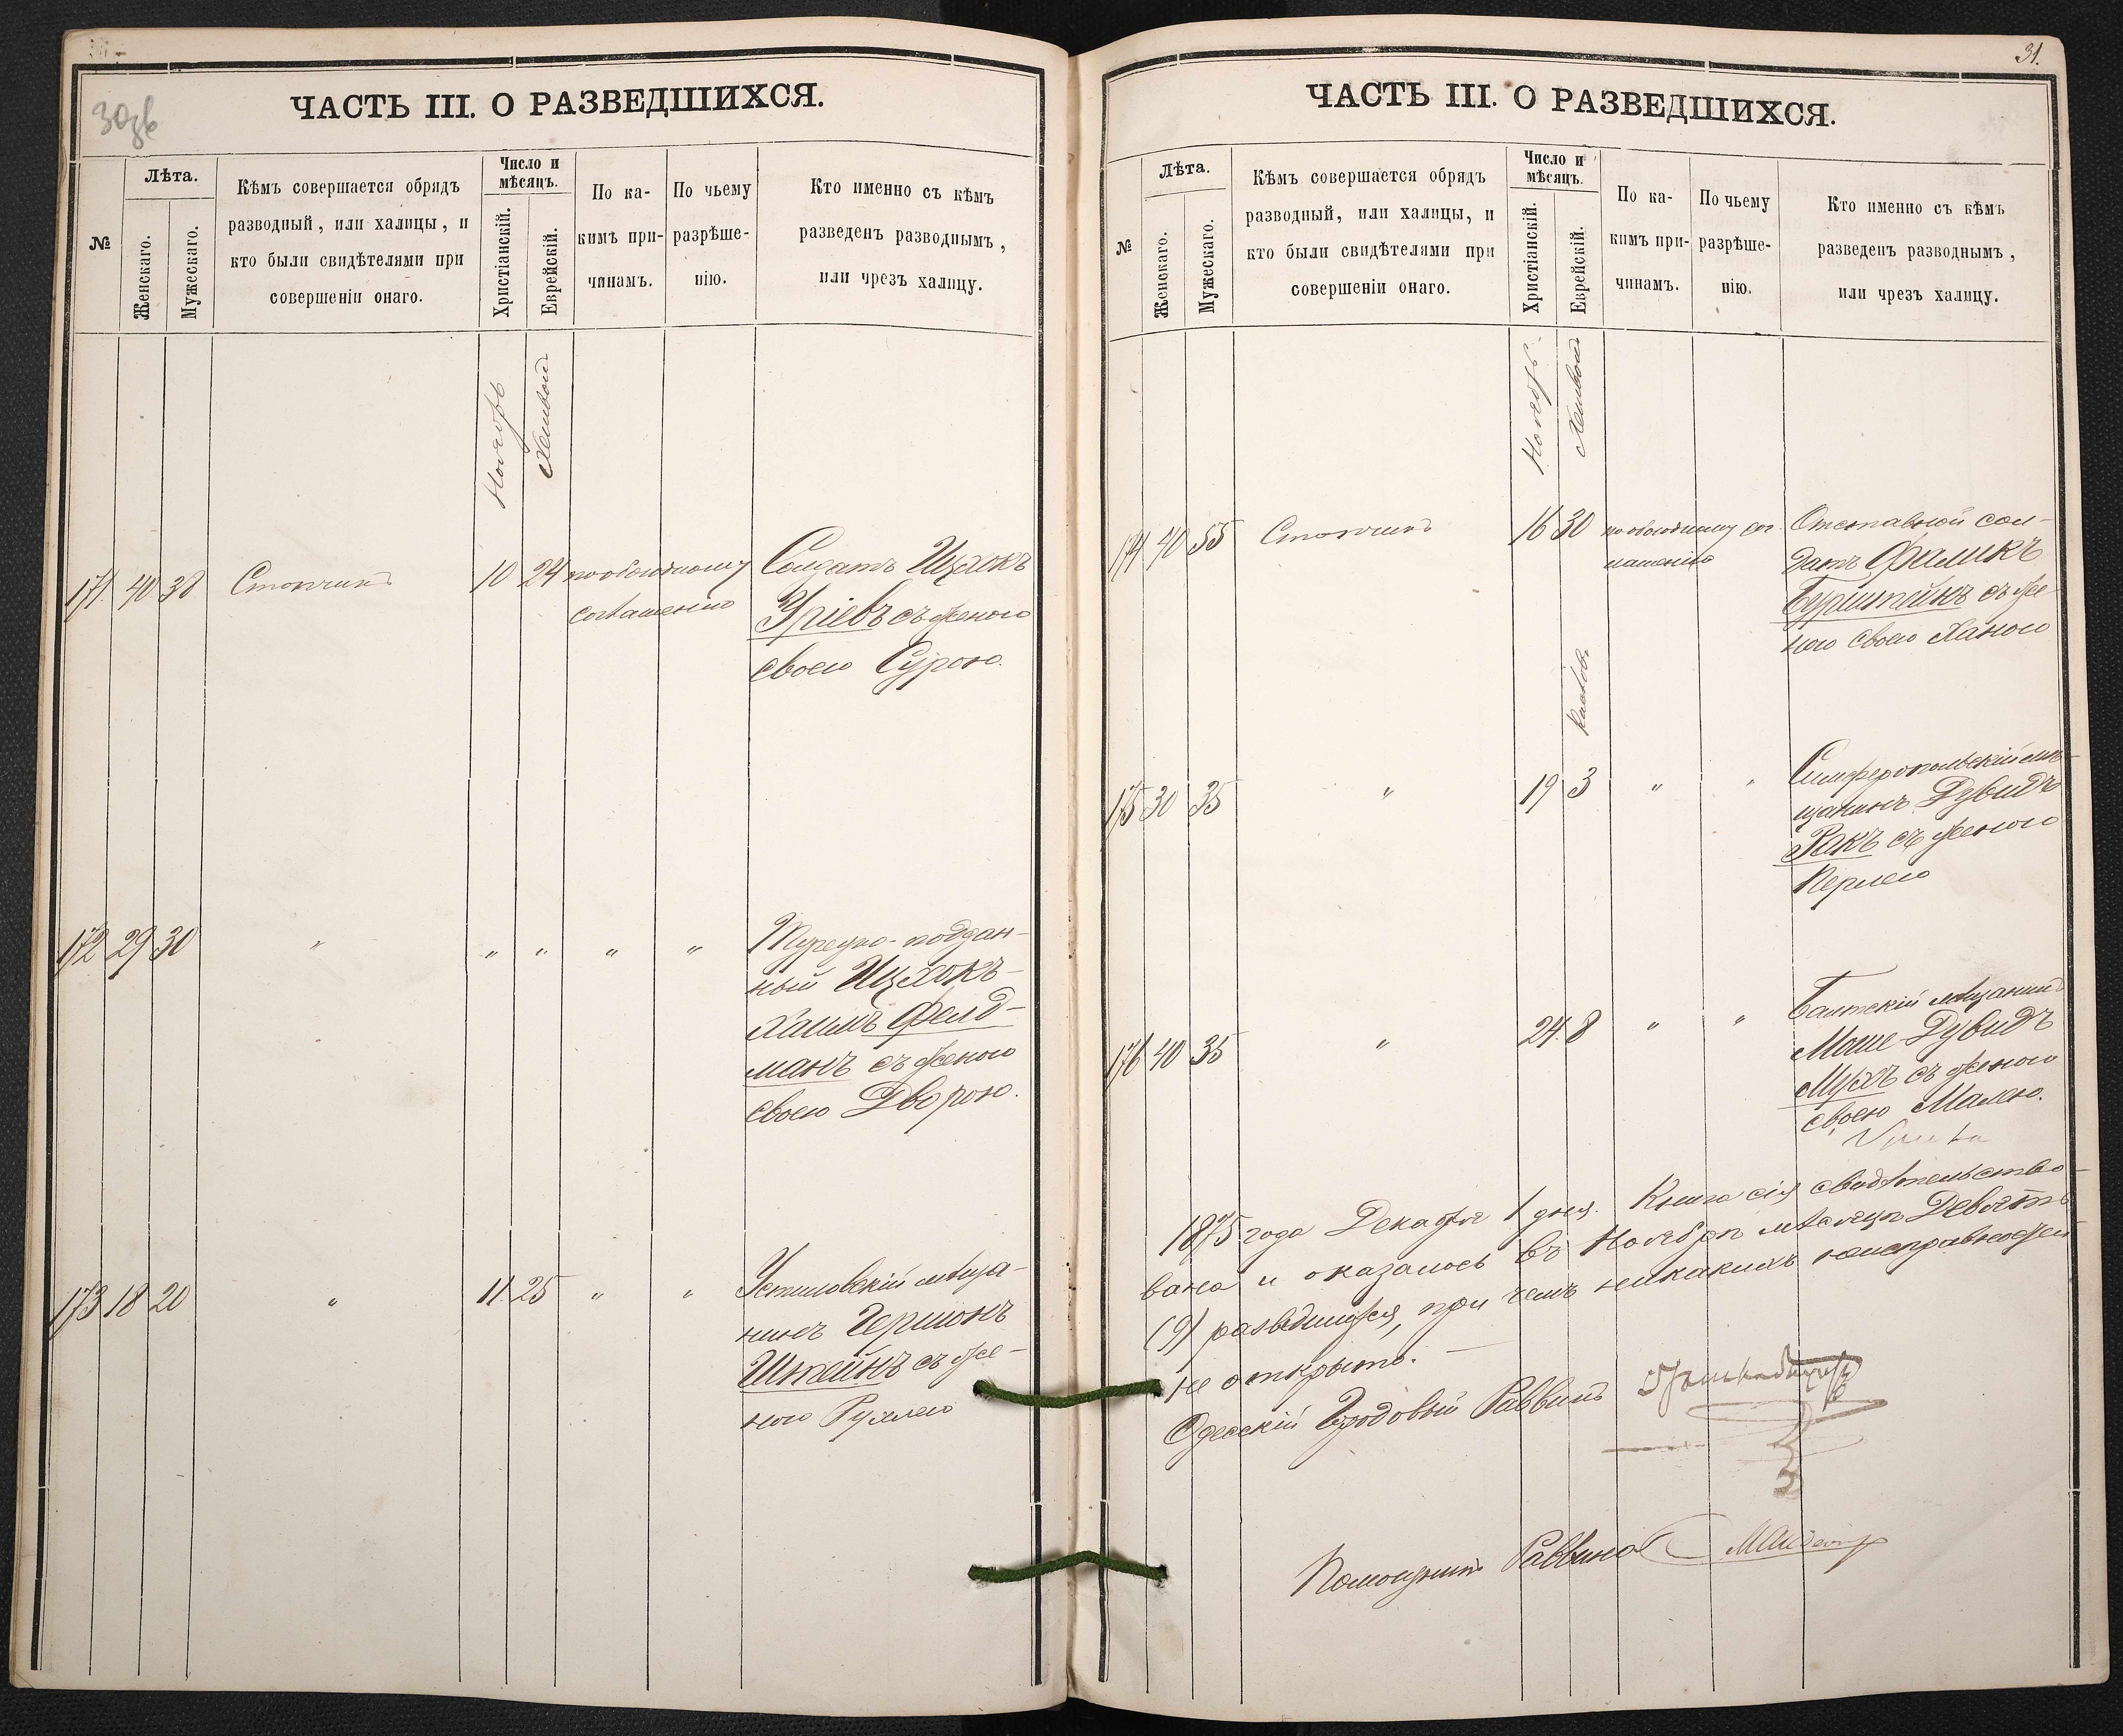 30зв
ЧАСТЬ III. О РАЗВЕДШИХСЯ.
№
Лѣта.
Женскаго.
Мужескаго.
Кѣмъ совершается обрядъ
разводный, или халицы, и
кто были свидѣтелями при
совершеніи онаго.
Число и
мѣсяцъ.
Христіанскій.
Еврейскій.
По ка-
кимъ при-
чинамъ.
По чьему
разрѣше-
нію.
Кто именно съ кѣмъ
разведенъ разводнымъ,
или чрезъ халицу.
Ноябрь
Хешвой
171. 40 38 10 24 по обоюдному
соглашенію
Солдатъ Ицхокъ
Уріевъ съ женою
своею Сурою.
172 29 30 " " " " "
Турецко-поддан-
ный Ицхокъ-
Хаимъ Фелд-
манъ съ женою
своею Дворою.
173 18 20 " 11 25 " "
мѣща-
нинъ Гершонъ
Штейнъ съ же-
ною Рухлею
31.
ЧАСТЬ III. О РАЗВЕДШИХСЯ.
№
Лѣта.
Женскаго.
Мужескаго.
Кѣмъ совершается обрядъ
разводный, или халицы, и
кто были свидѣтелями при
совершеніи онаго.
Число и
мѣсяцъ.
Христіанскій.
Еврейскій.
По ка-
кимъ при-
чинамъ.
По чьему
разрѣше-
нію.
Кто именно съ кѣмъ
разведенъ разводнымъ,
или чрезъ халицу.
Ноябрь
Хешвой
174 40 55 16 30 по обоюдному сог
лашенію
Отставной сол-
датъ Фаликъ
Бурштейнъ съ же-
ною своею Ханою
Кислев.
175 30 35 " 19 3 " "
Симферопольскій мѣ-
щанинъ Дувидъ
Ракъ съ женою
Перлею
176 40 35 " 24 8 " "
Балтскій мѣщанинъ
Мошe-Дувидъ
съ женою
своею Малею.
1875 года Декабря 1 дня. Книга сія свидѣтельство-
вана и оказалось въ Ноябрѣ мѣсяцѣ Девять
(9) разведшихся, при чемъ никакихъ неисправностей
не открыто.
Одесскій Городовый Раввинъ
Помощникъ Раввина